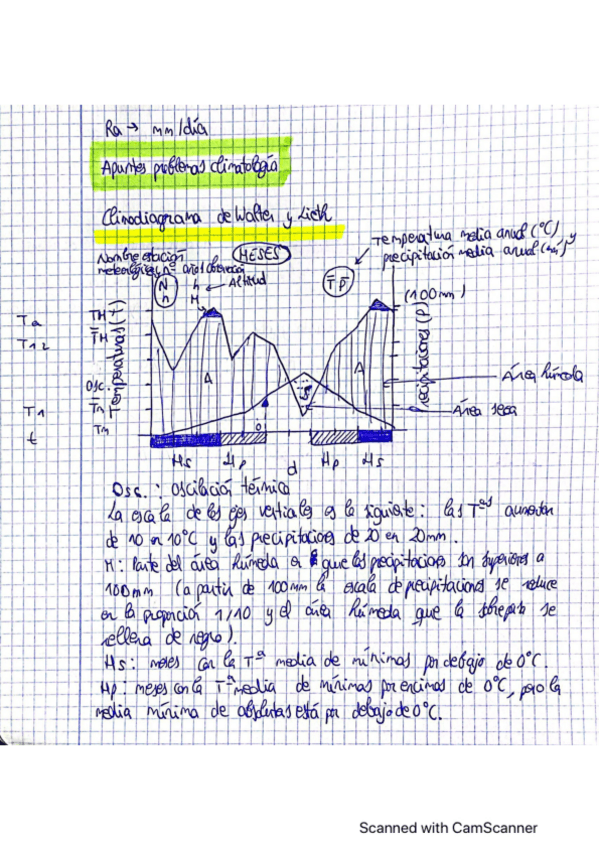 Ra → mm/día
Apuntes problemas climatología
Climodiagrama de Walter y Lieth
Nombre estación
meteorológica y nº años observación
MESES
Temperatura media anual (°C) y
precipitación media anual (mm)
N
n
h ← Altitud
M
T̄ P̄
(100mm)
Ta
T12
T1
t
TH
T̄H
OSC.
T̄m
Tm
Temperaturas (t)
Precipitaciones (P)
A
A
Área húmeda
Área seca
Hs Hp d Hp Hs
Osc. : oscilación térmica
La escala de los ejes vertiales es la siguiete : las Tªs aumentan
de 10 en 10°C y las precipitaciones de 20 en 20mm.
M : Parte del área húmeda en que las precipitaciones son superiores a
100mm (a partir de 100mm la escala de precipitaciones se reduce
en la proporción 1/10 y el área húmeda que la sobrepasa se
rellena de negro).
Hs : meses con la Tª media de mínimas por debajo de 0°C.
Hp : meses con la Tª media de mínimas por encima de 0°C, pero la
media mínima de absolutas está por debajo de 0°C.
Scanned with CamScanner